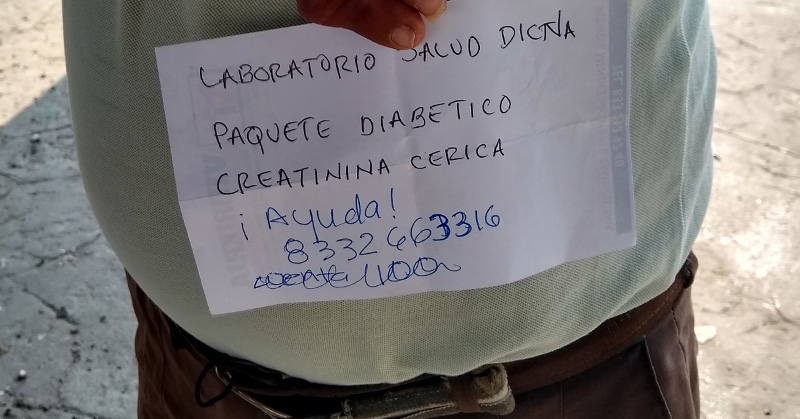 LABORATORIO SALUD DIGNA
PAQUETE DIABETICO
CREATININA CERICA
¡Ayuda!
8332663316